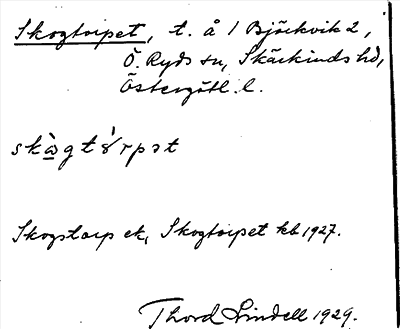 Skogtorpet, t. å 1 Björkvik 2,
Ö. Ryds sn, Skärkinds hd,
Östergötl. l.
Skogstorp ek, Skogtorpet kb 1927.
Thord Lindell 1929.